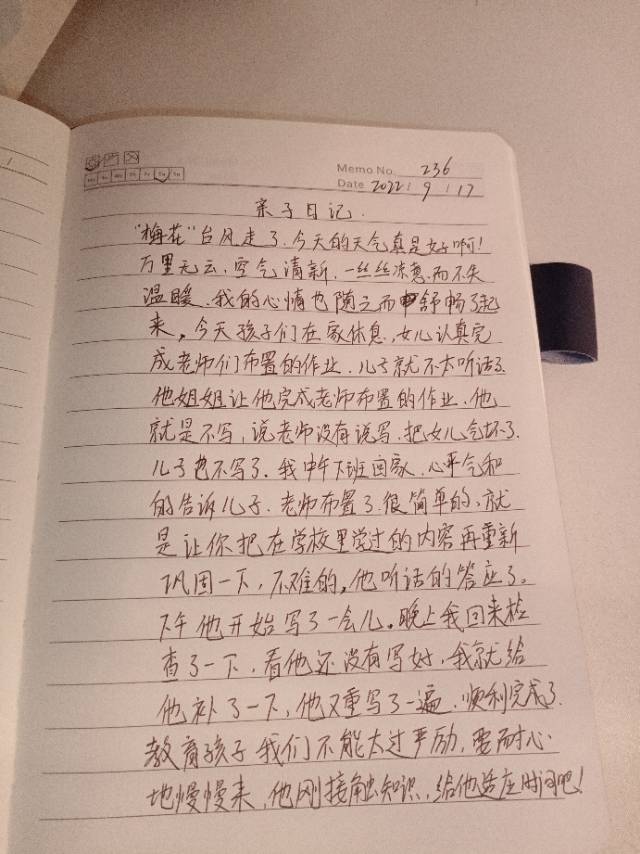 Memo No. 236
Date 2022 / 9 / 17
亲子日记.
“梅花”台风走了.今天的天气真是好啊!
万里无云.空气清新.一丝丝凉意.而不失
温暖.我的心情也随之而舒畅了起
来。今天孩子们在家休息,女儿认真完
成老师们布置的作业.儿子就不太听话了.
他姐姐让他完成老师布置的作业.他
就是不写,说老师没有说写.把女儿气坏了.
儿子也不写了.我中午下班回家.心平气和
的告诉儿子.老师布置了.很简单的,就
是让你把在学校里学过的内容再重新
巩固一下,不难的。他听话的答应了。
下午他开始写了一会儿。晚上我回来检
查了一下,看他还没有写好,我就给
他补了一下,他又重写了一遍.顺利完成了.
教育孩子我们不能太过严励,要耐心.
地慢慢来,他刚接触知识,给他适应时间吧!